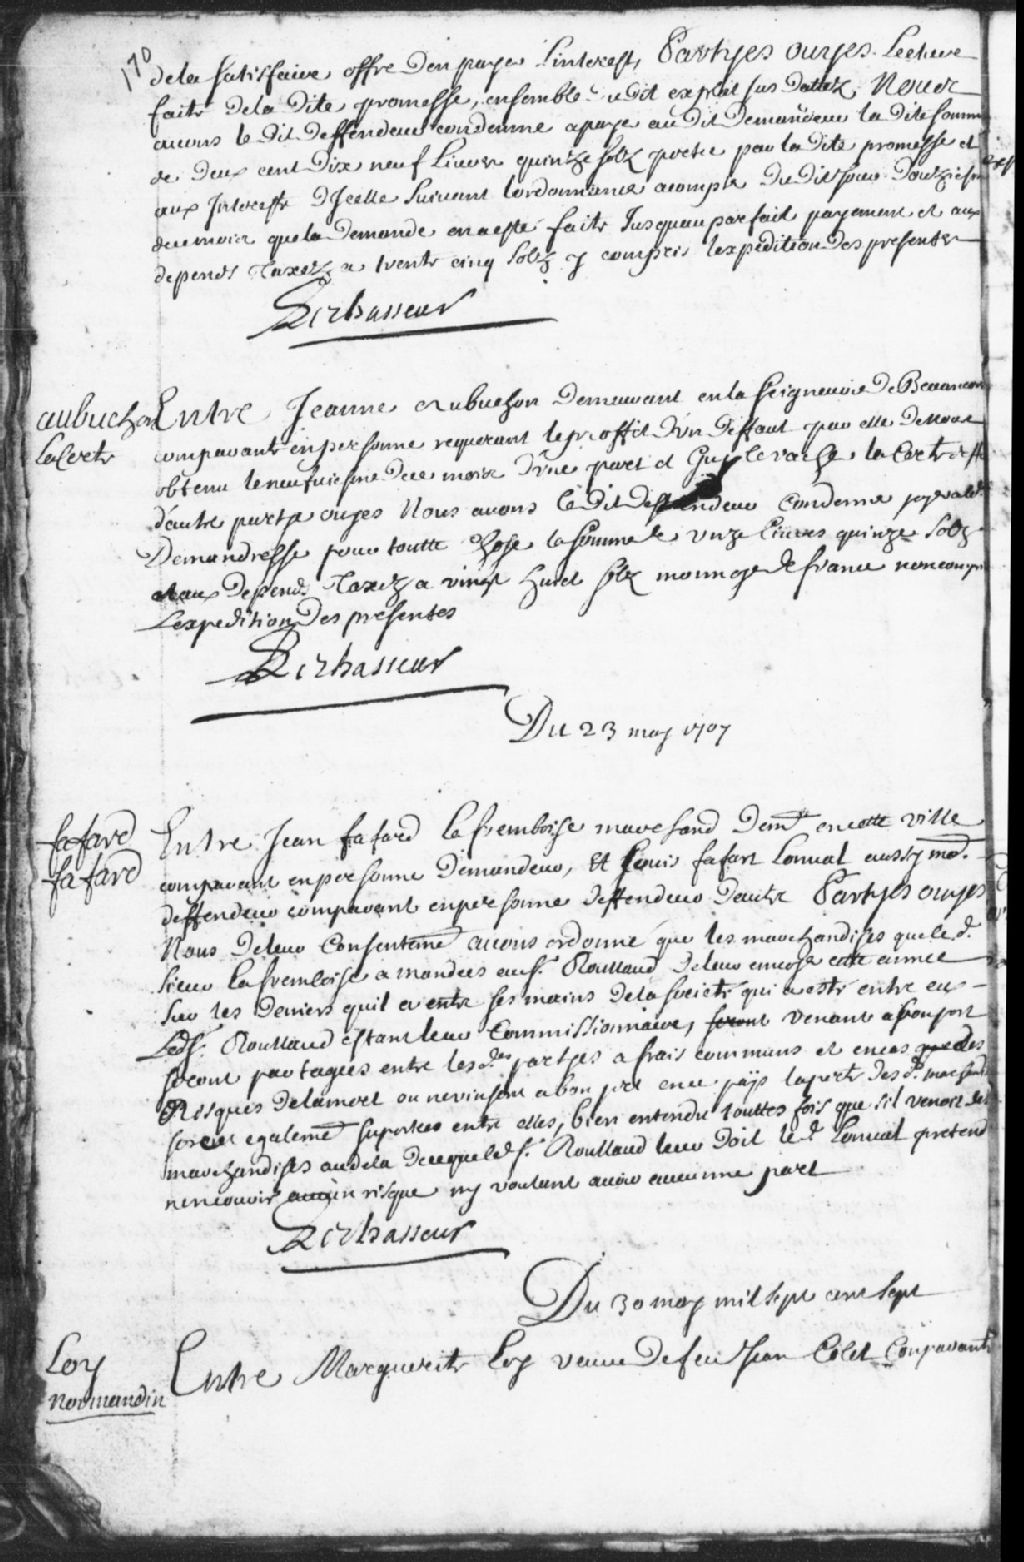 170
de la satisfaire offre d'en payer l'interest, Partyes ouyes Lecture
faite de la dite promesse, ensemble dudit exploit sus datté, Nous
avons le dit deffendeur condemné a payer au dit demandeur la dite somme
de deux cent dix neuf Livres quinze solz portée par la dite promesse et
aux Interests d'Icelle suivant l'ordonnance a compter du dit jour douziesme
de ce mois que la demande en a esté faite Jusqu'au parfait payement et aux
depens Taxez a trente cinq solz y compris l'expedition des presentes
Lechasseur
aubuchon
La Certe
Entre Jeanne Aubuchon demeurant en la seigneurie de Beaucour
comparante en personne requerant le proffit d'un deffaut par elle de Nous
obtenu le neufuiesme de ce mois d'une part et Guy le vache la Certe deff
d'autre part ouyes Nous avons le dit deffendeur Condemné payer a la
Demandresse pour toutte chose la somme de unze livres quinze solz
et aux depens Taxez a vingt huict solz monnoye de france non compris
L'expedition des presentes
Lechasseur
Du 23 may 1707
fafard
fafard
Entre Jean fafard Laframboise marchand demt en cette ville
comparant en personne Demandeur, Et Louis fafart Lonval aussy md.
deffendeur comparant en personne deffendeur d'autre Partyes ouyes
Nous de leur Consentemt avons ordonné que les marchandises que le d.
sieur Laframboise a mandées au s. Roullaud de leur envoyer cette année
sur les deniers qu'il a entre ses mains de la societé qui a esté entre eux
Led s. Roullaud estant leur Commissionnaire, seront venant a bon port
seront partagées entre les des partyes a frais communs et en cas que des
Risques de la mer ou ne vinsent a bon port en ce pays la perte des d. marchand
sera egalemt suportée entre elles, bien entendu touttes fois que s'il venoit des
marchandises au dela de ce que le d s. Roullaud leur doit le d. Lonval pretend
n'encourir aucun risque ny voulant avoir aucunne part
Lechasseur
Du 30 may mil sept cent sept
Loy
Normandin
Entre Marguerite Loy veuve de feu Jean Colet Comparante